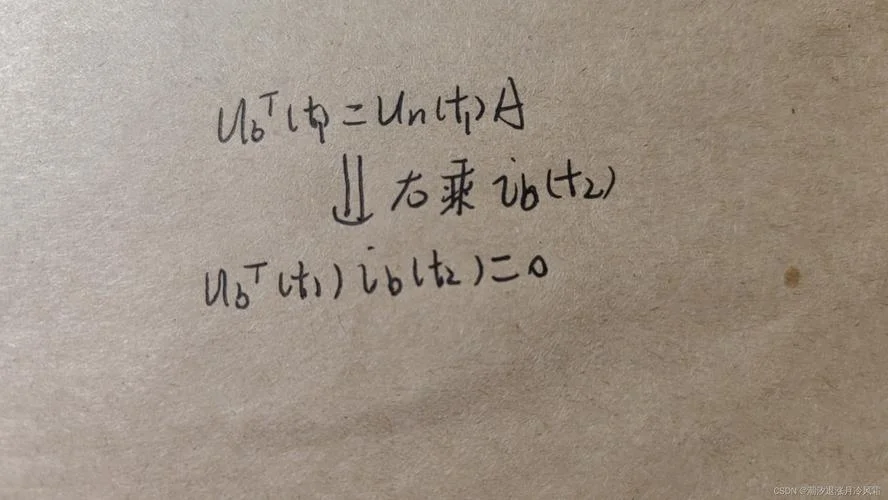 u_b^T(t_1)=u_n(t_1)A
⇓ 右乘 i_b(t_2)
u_b^T(t_1) i_b(t_2)=0
CSDN @潮汐退涨月冷风霜